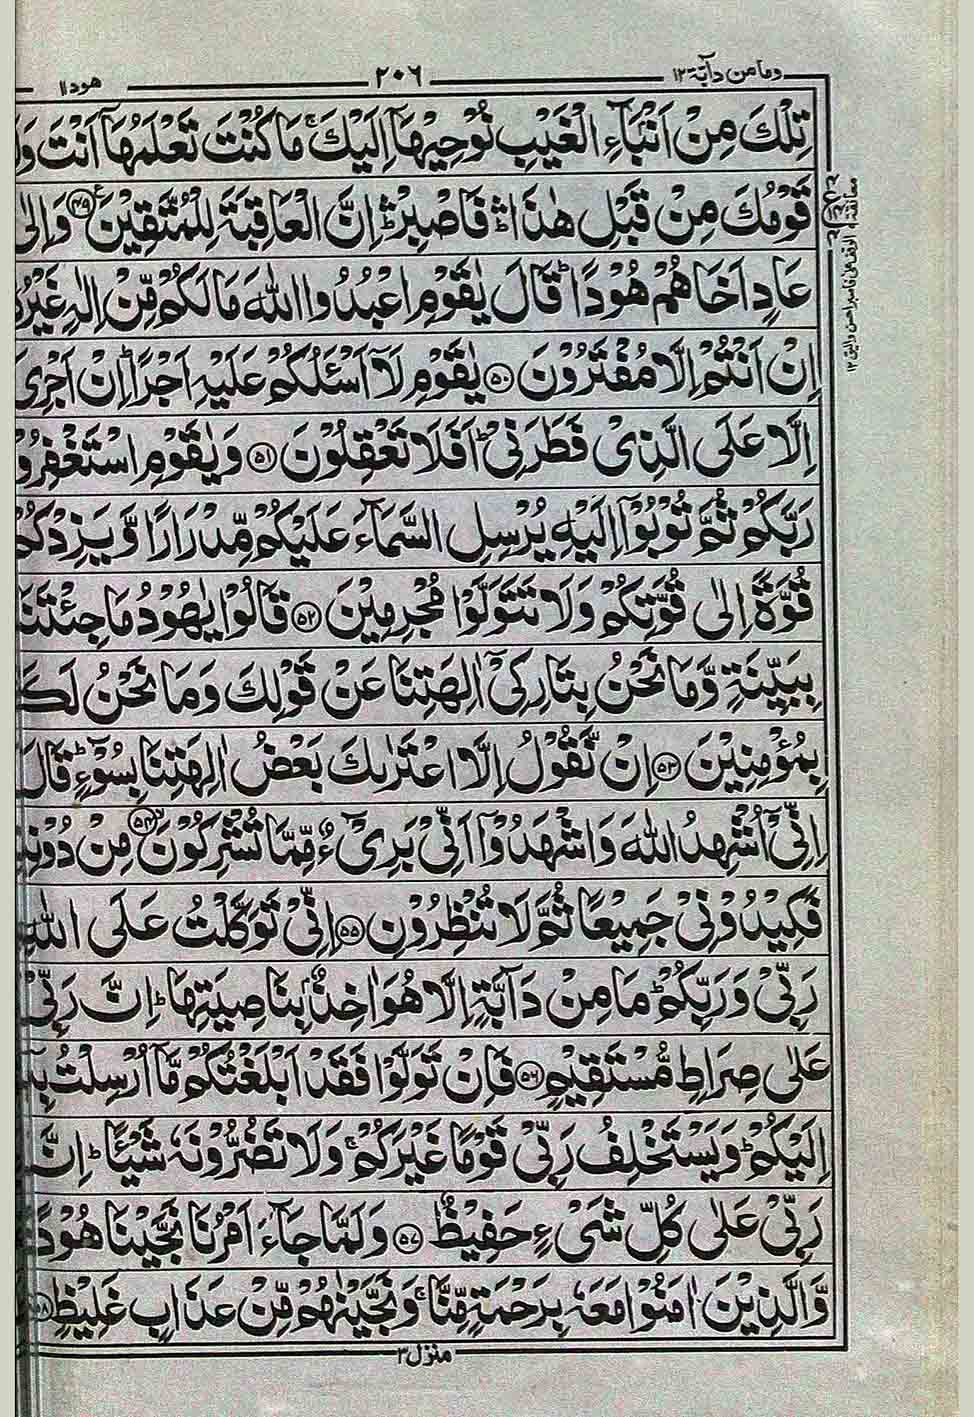 وما من دآبة ١٢
٢٠٦
هود ١١
تِلْكَ مِنْ اَنْۢبَآءِ الْغَيْبِ نُوْحِيْهَاۤ اِلَيْكَ ۚ مَا كُنْتَ تَعْلَمُهَاۤ اَنْتَ وَلَا
قَوْمُكَ مِنْ قَبْلِ هٰذَا ۛؕ فَاصْبِرْ ۛؕ اِنَّ الْعَاقِبَةَ لِلْمُتَّقِيْنَ ﴿۴۹﴾ وَاِلٰى
عَادٍ اَخَاهُمْ هُوْدًا ؕ قَالَ يٰقَوْمِ اعْبُدُوا اللّٰهَ مَا لَكُمْ مِّنْ اِلٰهٍ غَيْرُهٗ
اِنْ اَنْتُمْ اِلَّا مُفْتَرُوْنَ ﴿۵۰﴾ يٰقَوْمِ لَاۤ اَسْئَلُكُمْ عَلَيْهِ اَجْرًا ؕ اِنْ اَجْرِىَ
اِلَّا عَلَى الَّذِىْ فَطَرَنِىْ ؕ اَفَلَا تَعْقِلُوْنَ ﴿۵۱﴾ وَيٰقَوْمِ اسْتَغْفِرُوْا
رَبَّكُمْ ثُمَّ تُوْبُوْۤا اِلَيْهِ يُرْسِلِ السَّمَآءَ عَلَيْكُمْ مِّدْرَارًا وَّيَزِدْكُمْ
قُوَّةً اِلٰى قُوَّتِكُمْ وَلَا تَتَوَلَّوْا مُجْرِمِيْنَ ﴿۵۲﴾ قَالُوْا يٰهُوْدُ مَا جِئْتَنَا
بِبَيِّنَةٍ وَّمَا نَحْنُ بِتَارِكِىْۤ اٰلِهَتِنَا عَنْ قَوْلِكَ وَمَا نَحْنُ لَكَ
بِمُؤْمِنِيْنَ ﴿۵۳﴾ اِنْ نَّقُوْلُ اِلَّا اعْتَرٰىكَ بَعْضُ اٰلِهَتِنَا بِسُوْٓءٍ ؕ قَالَ
اِنِّىْۤ اُشْهِدُ اللّٰهَ وَاشْهَدُوْۤا اَنِّىْ بَرِىْٓءٌ مِّمَّا تُشْرِكُوْنَ ﴿۵۴﴾ مِنْ دُوْنِهٖ
فَكِيْدُوْنِىْ جَمِيْعًا ثُمَّ لَا تُنْظِرُوْنِ ﴿۵۵﴾ اِنِّىْ تَوَكَّلْتُ عَلَى اللّٰهِ
رَبِّىْ وَرَبِّكُمْ ؕ مَا مِنْ دَآبَّةٍ اِلَّا هُوَ اٰخِذٌۢ بِنَاصِيَتِهَا ؕ اِنَّ رَبِّىْ
عَلٰى صِرَاطٍ مُّسْتَقِيْمٍ ﴿۵۶﴾ فَاِنْ تَوَلَّوْا فَقَدْ اَبْلَغْتُكُمْ مَّاۤ اُرْسِلْتُ بِهٖۤ
اِلَيْكُمْ ؕ وَيَسْتَخْلِفُ رَبِّىْ قَوْمًا غَيْرَكُمْ ۚ وَلَا تَضُرُّوْنَهٗ شَيْئًا ؕ اِنَّ
رَبِّىْ عَلٰى كُلِّ شَىْءٍ حَفِيْظٌ ﴿۵۷﴾ وَلَمَّا جَآءَ اَمْرُنَا نَجَّيْنَا هُوْدًا
وَّالَّذِيْنَ اٰمَنُوْا مَعَهٗ بِرَحْمَةٍ مِّنَّا ۚ وَنَجَّيْنٰهُمْ مِّنْ عَذَابٍ غَلِيْظٍ ﴿۵۸﴾
منزل ٣